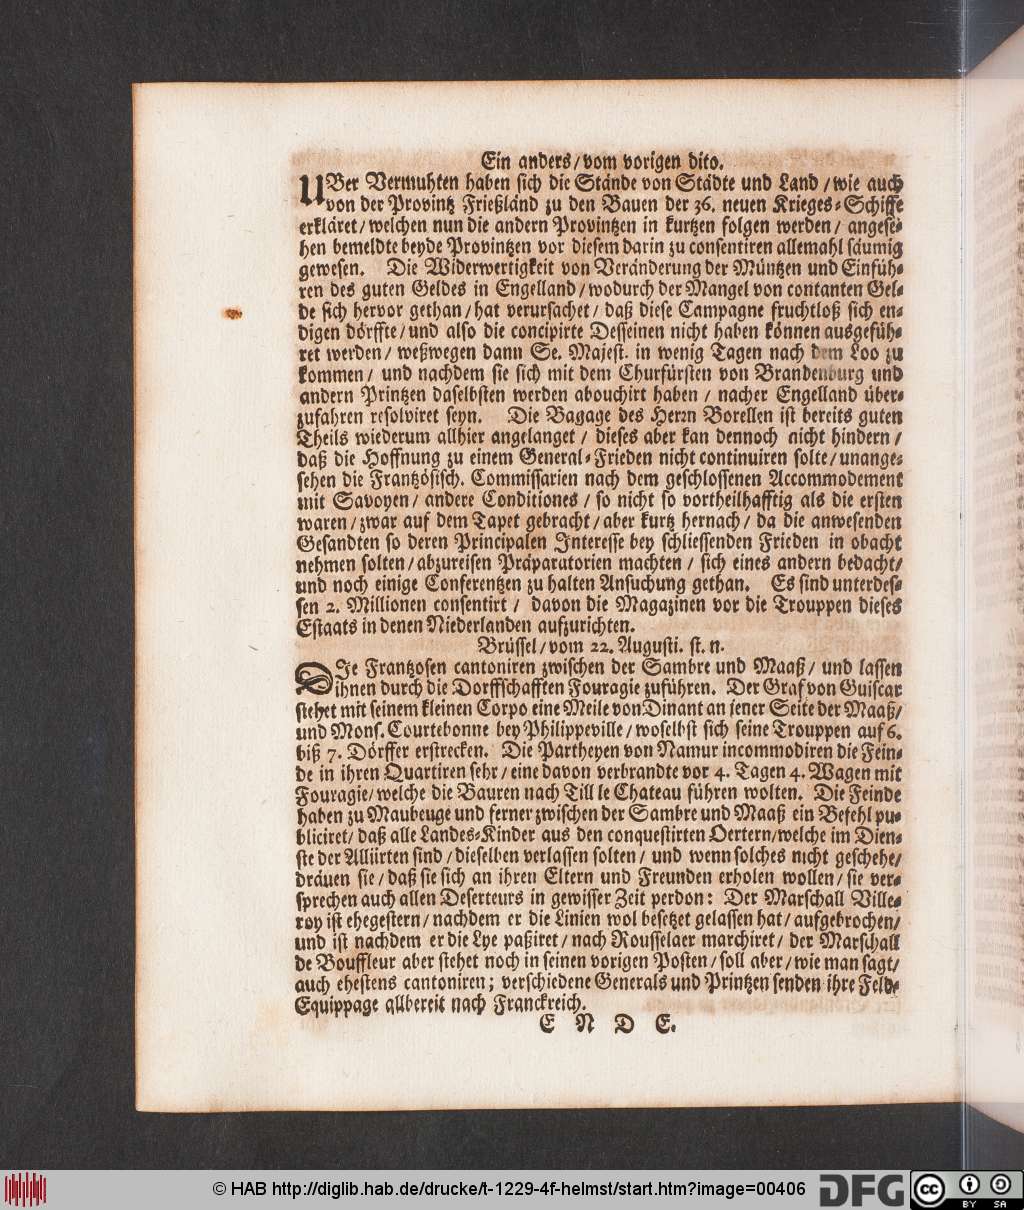 Ein anders/vom vorigen dito.
UBer Vermuhten haben sich die Stände von Städte und Land/wie auch
von der Provintz Frießland zu den Bauen der 36. neuen Krieges-Schiffe
erkläret/welchen nun die andern Provintzen in kurtzen folgen werden/ angese-
hen bemeldte beyde Provintzen vor diesem darin zu consentiren allemahl säumig
gewesen. Die Widerwertigkeit von Veränderung der Müntzen und Einfüh-
ren des guten Geldes in Engelland/wodurch der Mangel von contanten Gel-
de sich hervor gethan/hat verursachet/ daß diese Campagne fruchtloß sich en-
digen dörffte/und also die concipirte Desseinen nicht haben können ausgefüh-
ret werden/ weßwegen dann Se. Majest. in wenig Tagen nach dem Loo zu
kommen/ und nachdem sie sich mit dem Churfürsten von Brandenburg und
andern Printzen daselbsten werden abouchirt haben / nacher Engelland über-
zufahren resolviret seyn. Die Bagage des Herrn Borellen ist bereits guten
Theils wiederum allhier angelanget / dieses aber kan dennoch nicht hindern /
daß die Hoffnung zu einem General-Frieden nicht continuiren solte/unange-
sehen die Frantzösisch. Commissarien nach dem geschlossenen Accommodement
mit Savoyen/ andere Conditiones / so nicht so vortheilhafftig als die ersten
waren/zwar auf dem Tapet gebracht/aber kurtz hernach/ da die anwesenden
Gesandten so deren Principalen Interesse bey schliessenden Frieden in obacht
nehmen solten/abzureisen Präparatorien machten / sich eines andern bedacht/
und noch einige Conferentzen zu halten Ansuchung gethan. Es sind unterdes-
sen 2. Millionen consentirt / davon die Magazinen vor die Trouppen dieses
Estaats in denen Niederlanden aufzurichten.
Brüssel/vom 22. Augusti. st. n.
DIe Frantzosen cantoniren zwischen der Sambre und Maaß/ und lassen
ihnen durch die Dorffschafften Fouragie zuführen. Der Graf von Guiscar
stehet mit seinem kleinen Corpo eine Meile von Dinant an jener Seite der Maaß/
und Mons. Courtebonne bey Philippeville/woselbst sich seine Trouppen auf 6.
biß 7. Dörffer erstrecken. Die Partheyen von Namur incommodiren die Fein-
de in ihren Quartiren sehr/eine davon verbrandte vor 4. Tagen 4. Wagen mit
Fouragie/welche die Bauren nach Till le Chateau führen wolten. Die Feinde
haben zu Maubeuge und ferner zwischen der Sambre und Maaß ein Befehl pu-
bliciret/ daß alle Landes-Kinder aus den conquestirten Oertern/welche im Dien-
ste der Alliirten sind/dieselben verlassen solten/ und wenn solches nicht geschehe/
dräuen sie/daß sie sich an ihren Eltern und Freunden erholen wollen/sie ver-
sprechen auch allen Deserteurs in gewisser Zeit perdon: Der Marschall Ville-
roy ist ehegestern/nachdem er die Linien wol besetzet gelassen hat/aufgebrochen/
und ist nachdem er die Lye paßiret/nach Rousselaer marchiret/ der Marschall
de Bouffleur aber stehet noch in seinen vorigen Posten/soll aber/wie man sagt/
auch ehestens cantoniren; verschiedene Generals und Printzen senden ihre Feld-
Equippage allbereit nach Franckreich.
E N D E.
© HAB http://diglib.hab.de/drucke/t-1229-4f-helmst/start.htm?image=00406
DFG
cc
BY SA